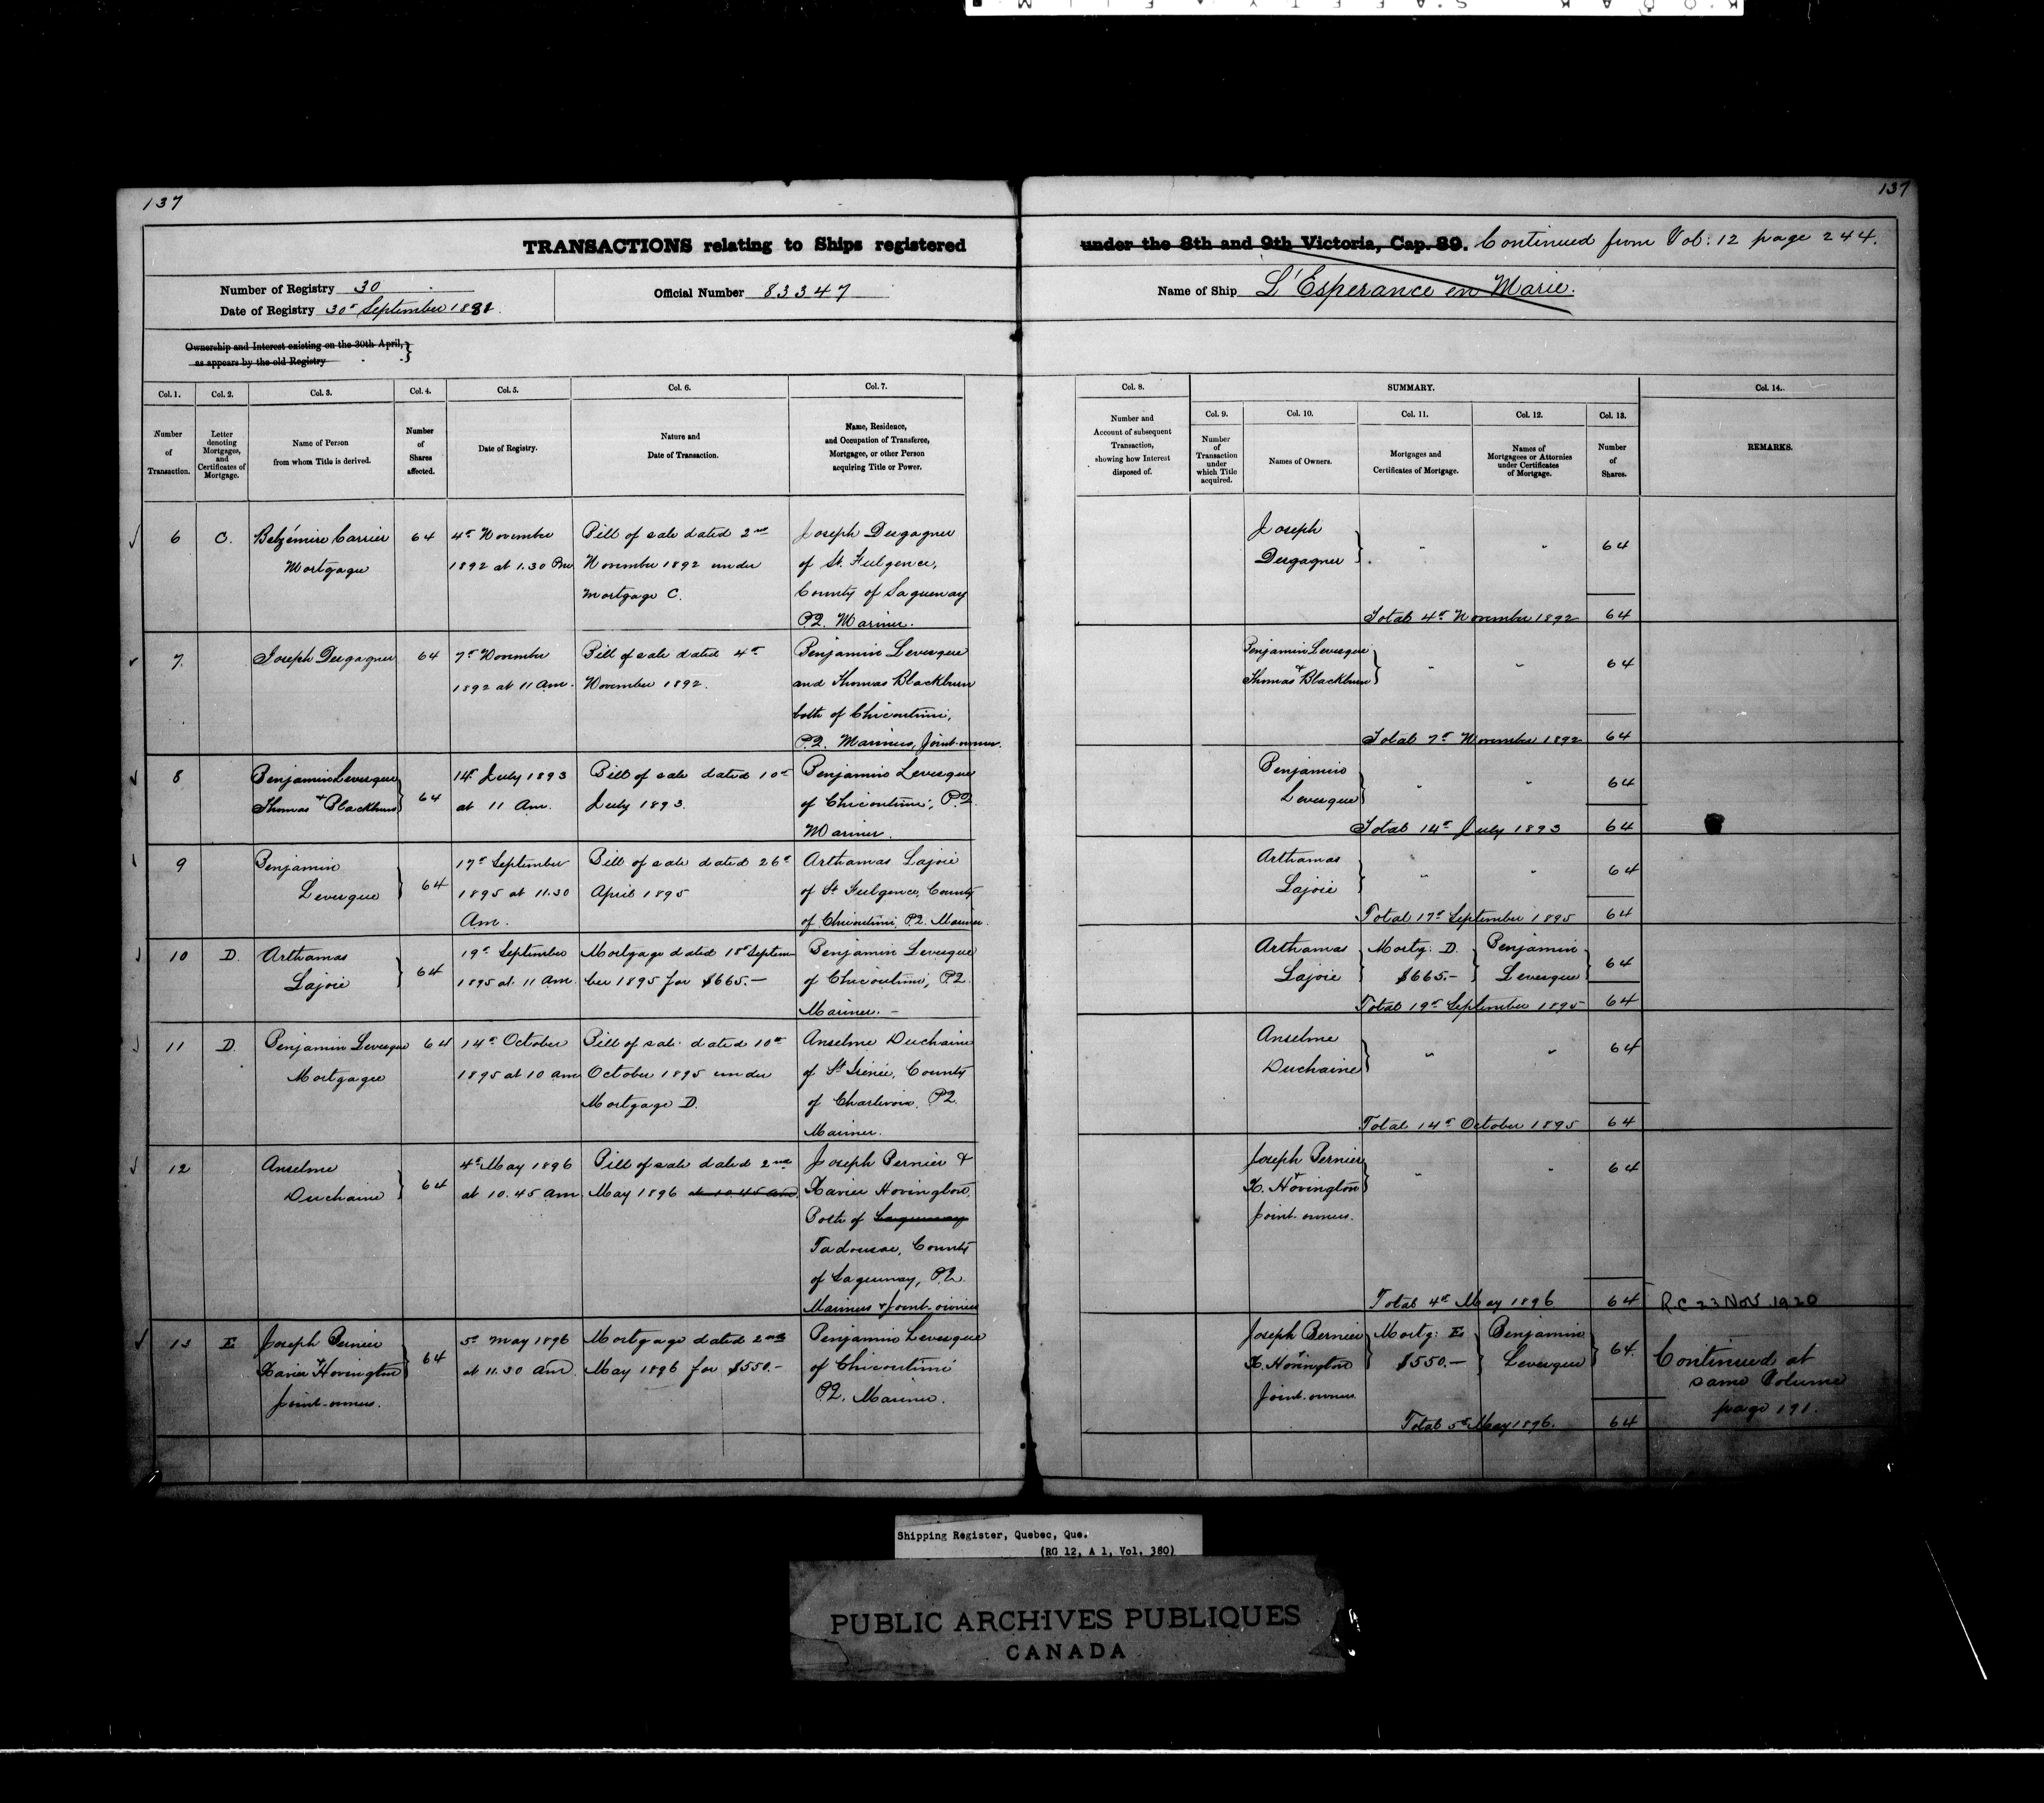 137
137
TRANSACTIONS relating to Ships registered under the 8th and 9th Victoria, Cap. 89. Continued from Vol: 12 page 244.
Number of Registry 30
Date of Registry 30th September 1881.
Official Number 83347
Name of Ship L'Esperance en Marie.
Ownership and Interest existing on the 30th April,
as appears by the old Registry
Col. 1.
Number
of
Transaction.
Col. 2.
Letter
denoting
Mortgages,
and
Certificates of
Mortgage.
Col. 3.
Name of Person
from whom Title is derived.
Col. 4.
Number
of
Shares
affected.
Col. 5.
Date of Registry.
Col. 6.
Nature and
Date of Transaction.
Col. 7.
Name, Residence,
and Occupation of Transferee,
Mortgagee, or other Person
acquiring Title or Power.
Col. 8.
Number and
Account of subsequent
Transaction,
showing how Interest
disposed of.
SUMMARY.
Col. 9.
Number
of
Transaction
under
which Title
acquired.
Col. 10.
Names of Owners.
Col. 11.
Mortgages and
Certificates of Mortgage.
Col. 12.
Names of
Mortgagees or Attornies
under Certificates
of Mortgage.
Col. 13.
Number
of
Shares.
Col. 14.
REMARKS.
6
C.
Belzémire Carrier
Mortgagee
64
4th November
1892 at 1.30 Pm
Bill of sale dated 2nd
November 1892 under
Mortgage C.
Joseph Desgagner
of St. Fulgence,
County of Saguenay
P.Q. Mariner.
Joseph
Desgagner
64
Total 4th November 1892
64
7.
Joseph Desgagner
64
7th November
1892 at 11 am.
Bill of sale dated 4th
November 1892.
Benjamin Levesque
and Thomas Blackburn
both of Chicoutimi,
P.Q. Mariners, Joint-owners.
Benjamin Levesque
&
Thomas Blackburn
64
Total 7th November 1892
64
8
Benjamin Levesque
&
Thomas Blackburn
64
14th July 1893
at 11 Am.
Bill of sale dated 10th
July 1893.
Benjamin Levesque
of Chicoutimi, P.Q.
Mariner.
Benjamin
Levesque
64
Total 14th July 1893
64
9
Benjamin
Levesque
64
17th September
1895 at 11.30
Am.
Bill of sale dated 26th
April 1895
Arthamas Lajoie
of St Fulgence, County
of Chicoutimi, P.Q. Mariner.
Arthamas
Lajoie
64
Total 17th September 1895
64
10
D.
Arthamas
Lajoie
64
19th September
1895 at 11 am.
Mortgage dated 18th Septem
ber 1895 for $665.—
Benjamin Levesque
of Chicoutimi, P.Q.
Mariner. —
Arthamas
Lajoie
Mortg: D.
$665.—
Benjamin
Levesque
64
Total 19th September 1895
64
11
D.
Benjamin Levesque
Mortgagee
64
14th October
1895 at 10 am
Bill of sale dated 10th
October 1895 under
Mortgage D.
Anselme Duchaine
of St Irénée, County
of Charlevoix, P.Q.
Mariner.
Anselme
Duchaine
64
Total 14th October 1895
64
12
Anselme
Duchaine
64
4th May 1896
at 10.45 am
Bill of sale dated 2nd
May 1896 at 10.45 am
Joseph Bernier &
Xavier Hovington,
Both of Saguenay
Tadousac, County
of Saguenay, P.Q.
Mariners & Joint-owners
Joseph Bernier
&
X. Hovington
Joint-owners.
64
Total 4th May 1896
64
R.C 23 Nov 1920
13
E
Joseph Bernier
&
Xavier Hovington
Joint-owners.
64
5th May 1896
at 11.30 am.
Mortgage dated 2nd
May 1896 for $550.—
Benjamin Levesque
of Chicoutimi
P.Q. Mariner.
Joseph Bernier
&
X. Hovington
Joint-owners
Mortg: E
$550.—
Benjamin
Levesque
64.
Total 5th May 1896.
64
Continued at
same Volume
page 191.
Shipping Register, Quebec, Que.
(RG 12, A 1, Vol. 380)
PUBLIC ARCHIVES PUBLIQUES
CANADA